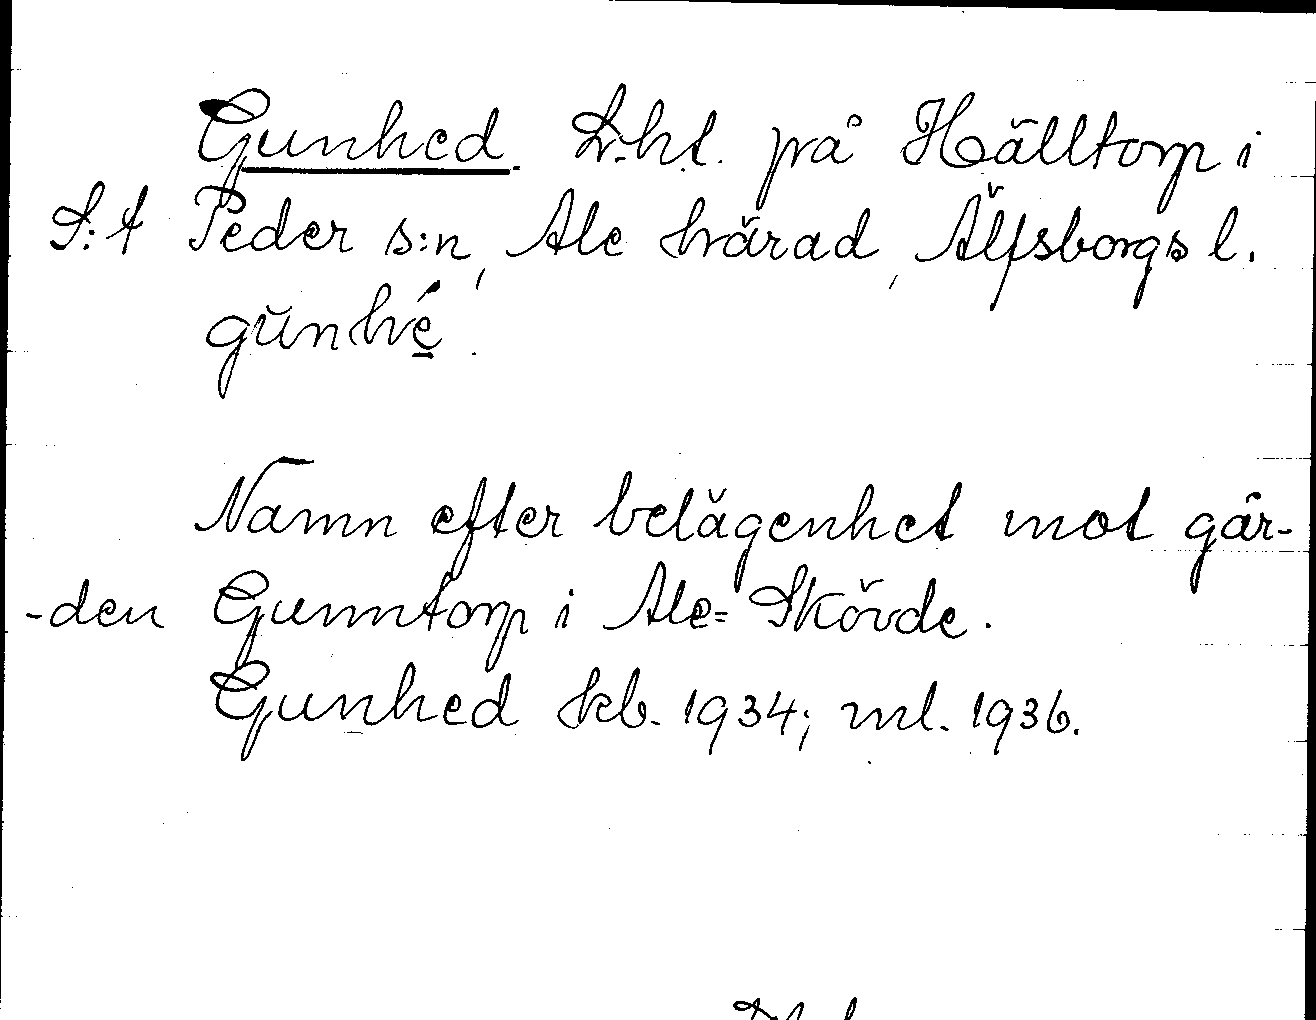 Gunhed. L.ht. på Hälltorp i
S:t Peder s:n, Ale härad, Älfsborgs l.
gŭnhé.
Namn efter belägenhet mot går-
-den Gunntorp i Ale=Skövde.
Gunhed kb. 1934; ml. 1936.